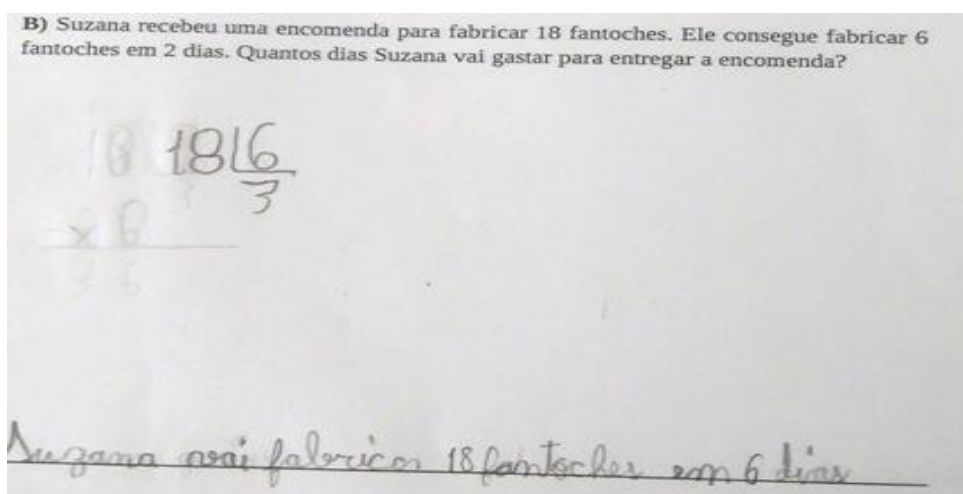 B) Suzana recebeu uma encomenda para fabricar 18 fantoches. Ele consegue fabricar 6
fantoches em 2 dias. Quantos dias Suzana vai gastar para entregar a encomenda?
18 18 6
3
x 6
Suzana vai fabricar 18 fantoches em 6 dias